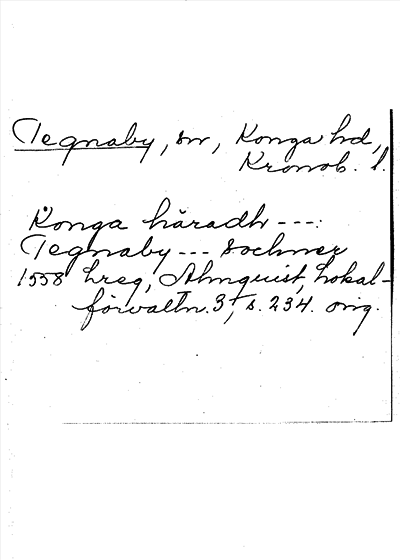 Tegnaby, sn, Konga hd,
Kronob. l.
Konga häradh ---:
Tegnaby --- sochner
1558 hreg, Almquist, Lokal-
förvaltn. 3, s. 234. orig.